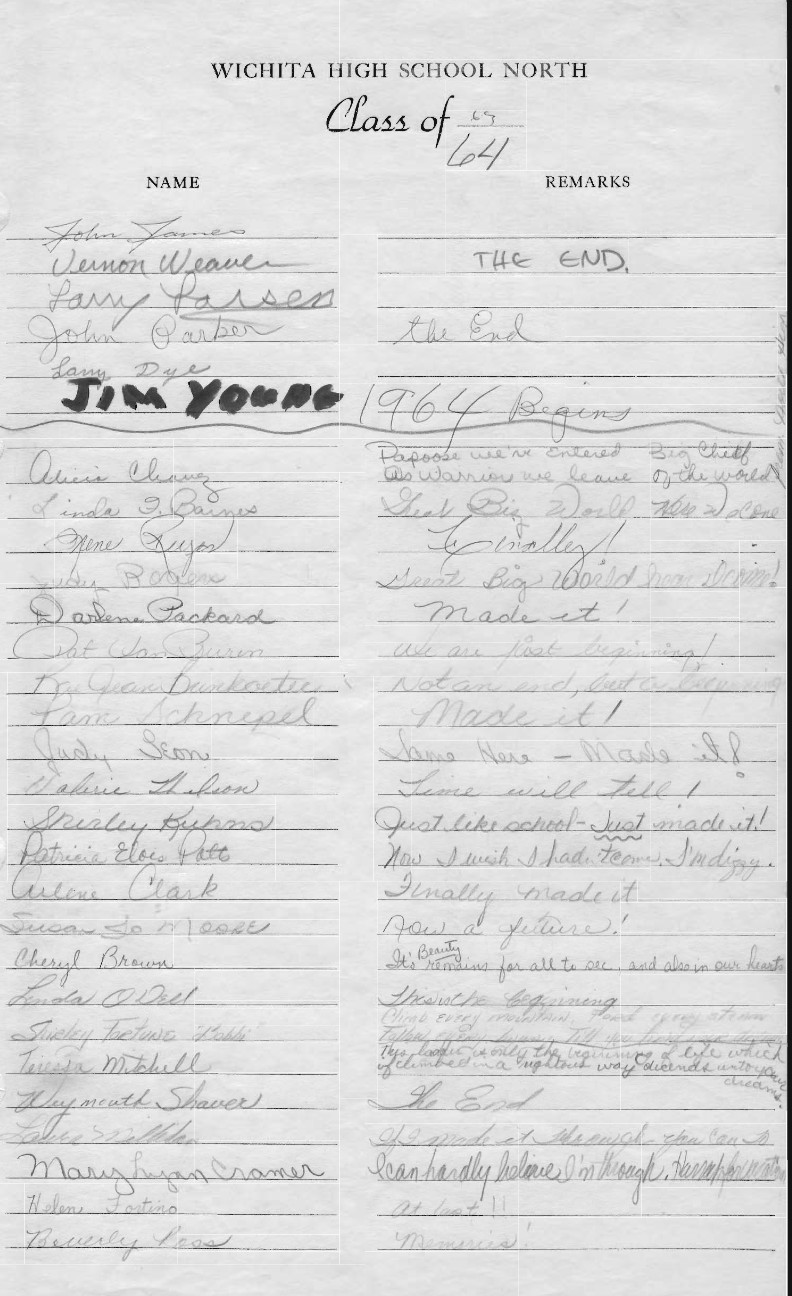 WICHITA HIGH SCHOOL NORTH
Class of 63
64
NAME REMARKS
John James
Vernon Weaver THE END.
Larry Larsen
John Parker the End
Larry Dye
JIM YOUNG 1964 Begins
Papoose we've entered Big Chief
Alicia Chavez As Warrior we leave of the world
Linda Barnes Great Big World Here we come
Gene Finally!
Rogers Great Big World
Darlene Packard Made it!
Pat Van Buren We are just beginning!
Not an end, but a beginning
Pam Schnepel Made it!
Judy Seon Same Here - Made it!
Valerie Time will tell!
Shirley Kuhns Just like school - Just made it!
Patricia Elois Potts Now I wish I hadn't come. I'm dizzy.
Arlene Clark Finally made it
Susan Jo Moore Now a future!
Cheryl Brown It's Beauty remains for all to see, and also in our hearts
Linda O'Dell This is the beginning
CLIMB EVERY MOUNTAIN, Ford every stream
Shirley Fortune "Bobbi" Follow every Till you find your dream
This ladder is only the beginning of life which
Teresa Mitchell if climbed in a righteous way
dreams.
Weymouth Shaver The End
If I made it through - you can to
Mary Lynn Cramer I can hardly believe I'm through.
Helen Fortino At last!!
Beverly Ross Memories!